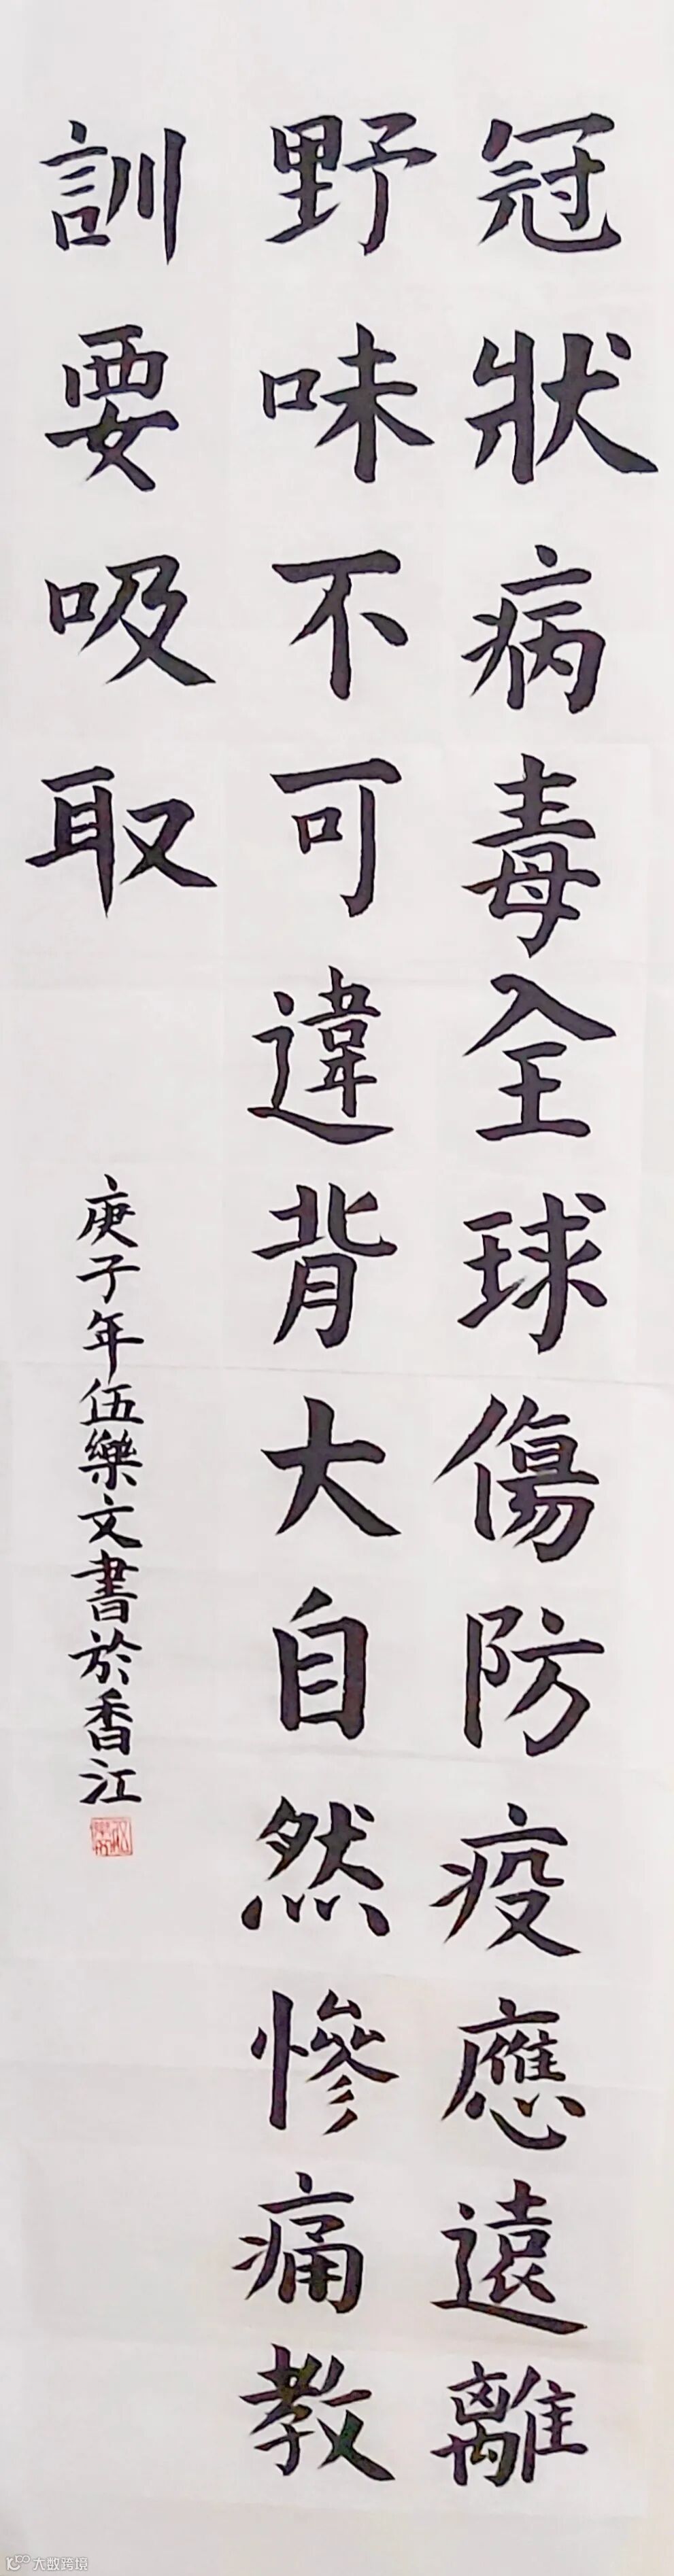 冠狀病毒全球傷防疫應遠離
野味不可違背大自然慘痛教
訓要吸取
庚子年伍樂文書於香江
大数跨境